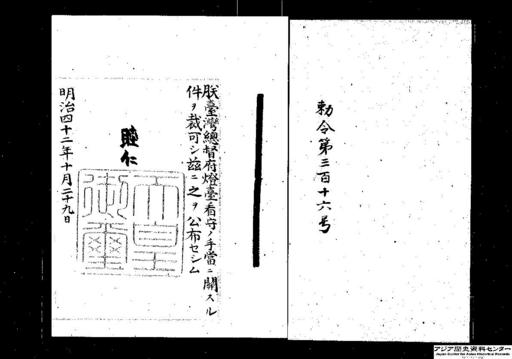 勅令第三百十六号
朕臺灣總督府燈臺看守ノ手當ニ關スル
件ヲ裁可シ茲ニ之ヲ公布セシム
睦仁
天皇
御璽
明治四十二年十月二十九日
アジア歴史資料センター
Japan Center for Asian Historical Records